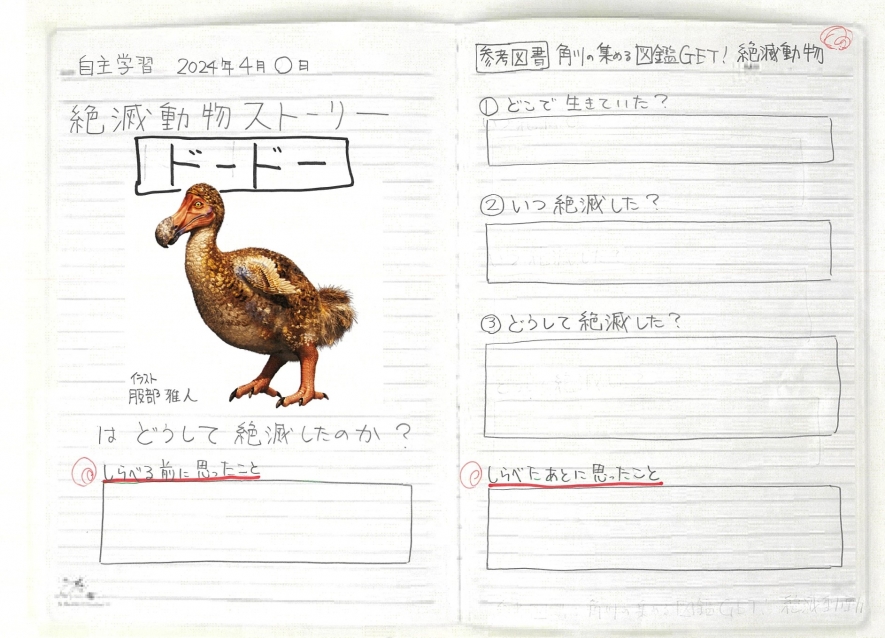 自主学習 2024年4月〇日
絶滅動物ストーリー
ドードー
イラスト
服部雅人
は どうして 絶滅したのか？
しらべる前に思ったこと
参考図書 角川の集める図鑑GET！ 絶滅動物
① どこで 生きていた？
② いつ 絶滅した？
③ どうして 絶滅した？
しらべたあとに思ったこと